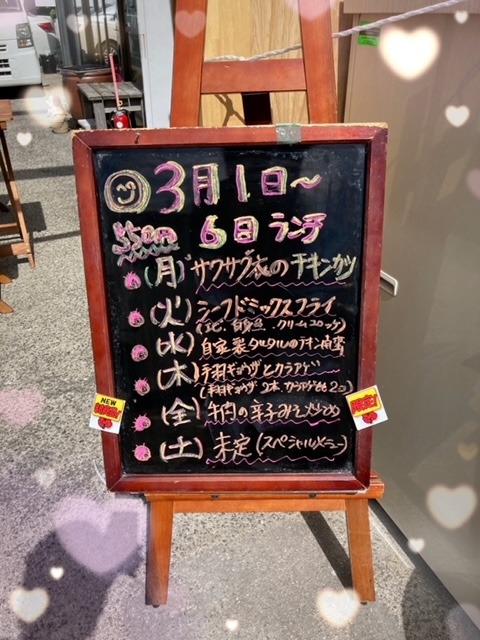 3月1日〜
550円 6日 ランチ
(月) サクサク衣のチキンカツ
(火) シーフードミックスフライ
(エビ、白身魚、クリームコロッケ)
(水) 自家製タルタルのチキン南蛮
(木) 手羽ギョウザとクラアゲ
(手羽ギョウザ 2本 カラアゲ 2コ)
(金) 牛肉の辛子みそ炒め
(土) 未定 (スペシャルメニュー)
NEW
限定!